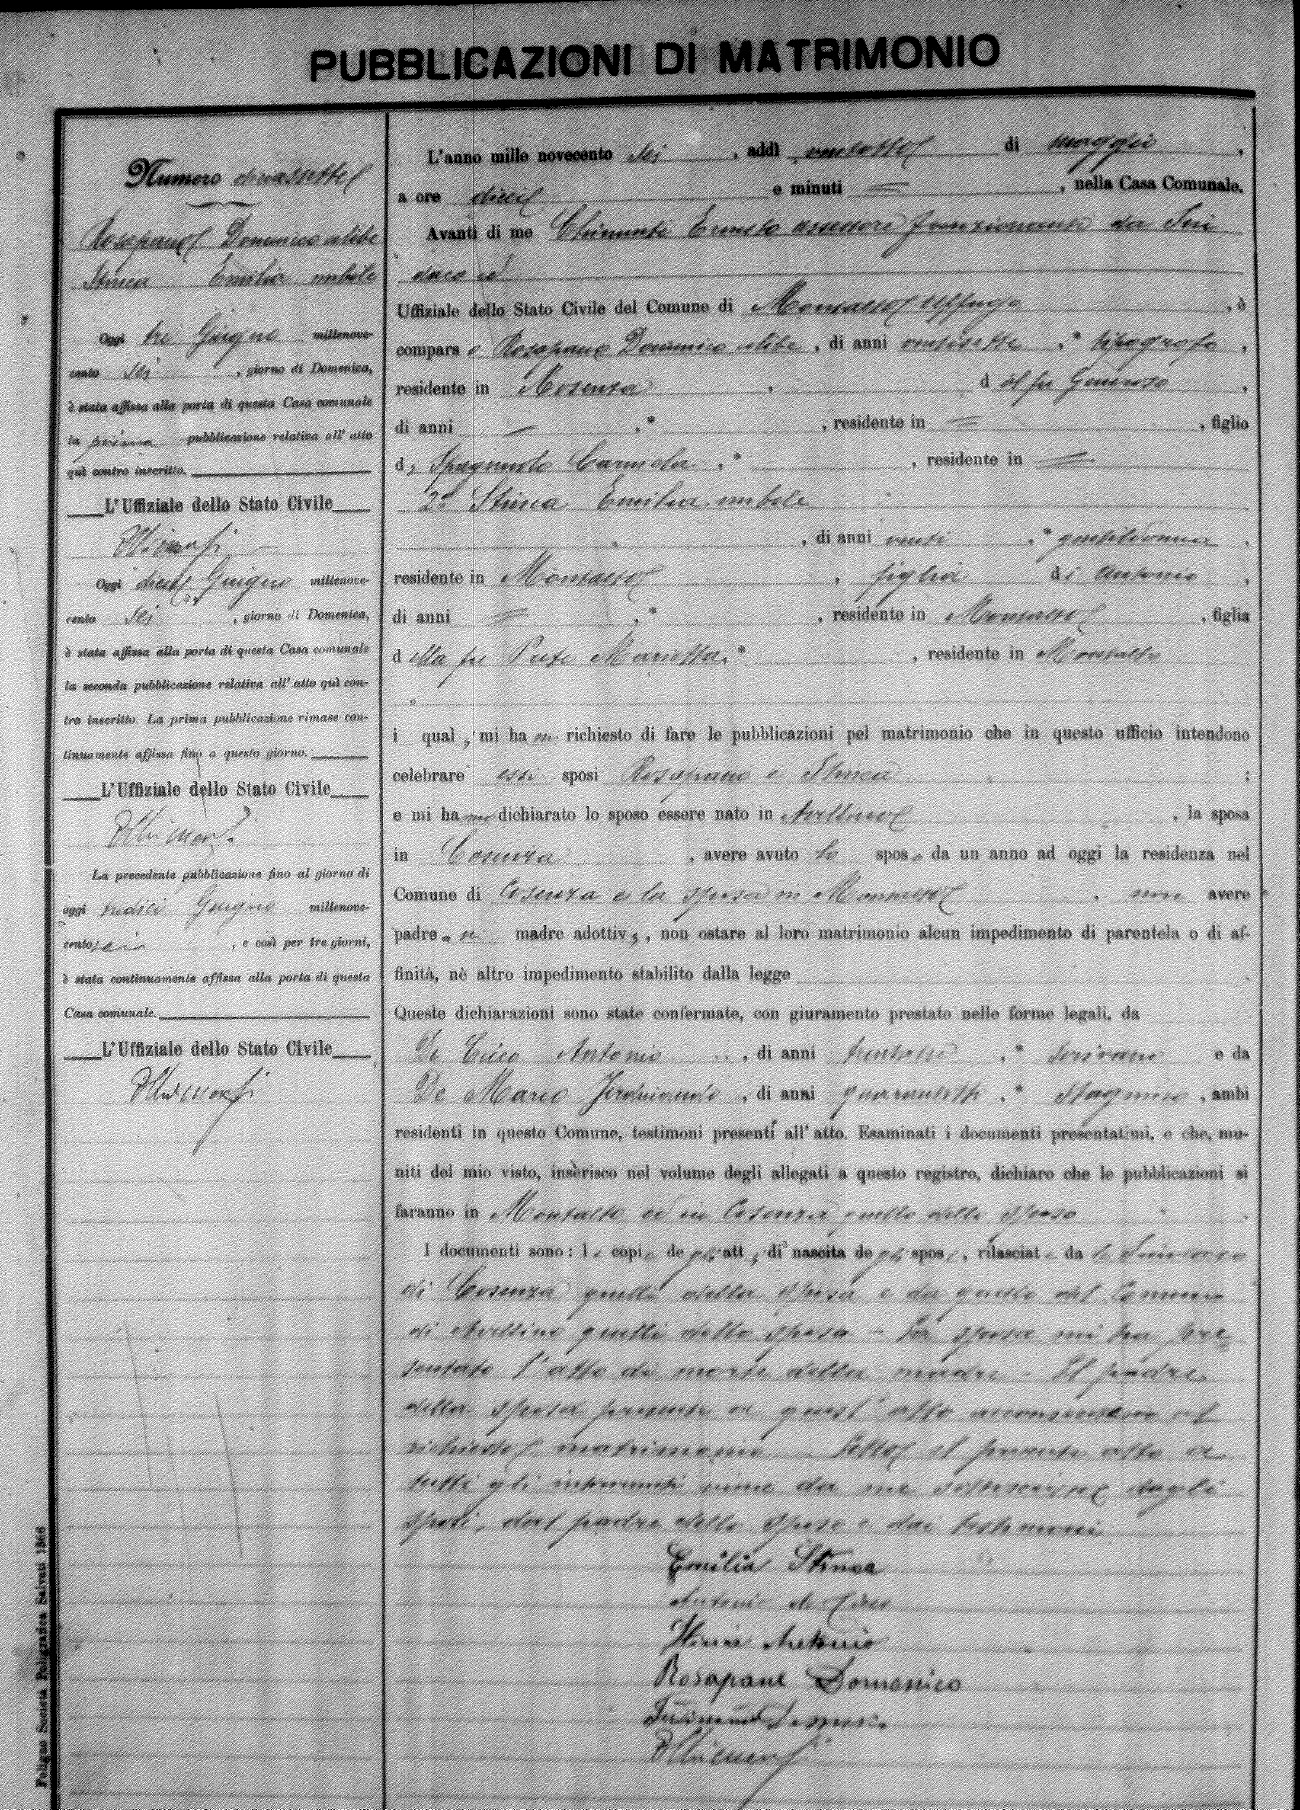 PUBBLICAZIONI DI MATRIMONIO
Numero diciassette
Rosapane Domenico celibe
Stinca Emilia nubile
Oggi tre Giugno millenove-
cento sei, giorno di Domenica,
è stata affissa alla porta di questa Casa comunale
la prima pubblicazione relativa all' atto
quì contro inscritto.
L'Uffiziale dello Stato Civile
Oggi dieci Giugno millenove-
cento sei, giorno di Domenica,
è stata affissa alla porta di questa Casa comunale
la seconda pubblicazione relativa all' atto quì con-
tro inscritto. La prima pubblicazione rimase con-
tinuamente affissa fino a questo giorno.
L'Uffiziale dello Stato Civile
La precedente pubblicazione fino al giorno di
oggi tredici Giugno millenove-
cento sei, e così per tre giorni,
è stata continuamente affissa alla porta di questa
Casa comunale.
L'Uffiziale dello Stato Civile
L'anno mille novecento sei, addì ventotto di maggio,
a ore dieci e minuti =, nella Casa Comunale.
Avanti di me Ernesto assessore funzionante da Sin
daco
Uffiziale dello Stato Civile del Comune di Montalto Uffugo, è
compars o Rosapane Domenico celibe, di anni ventisette, * tipografo,
residente in Cosenza, d el fu Generoso,
di anni =, * , residente in =, figlio
d i Spagnuolo Carmela, * , residente in =
2° Stinca Emilia nubile
, di anni venti, * gentildonna,
residente in Montalto, figlia d i Antonio,
di anni =, * , residente in Montalto, figlia
d ella fu Prete Marietta, * , residente in Montalto
i qual i mi ha nno richiesto di fare le pubblicazioni pel matrimonio che in questo ufficio intendono
celebrare essi sposi Rosapane e Stinca;
e mi ha nno dichiarato lo sposo essere nato in Avellino, la sposa
in Cosenza, avere avuto lo spos o da un anno ad oggi la residenza nel
Comune di Cosenza e la sposa in Montalto, non avere
padre o nè madre adottiv i, non ostare al loro matrimonio alcun impedimento di parentela o di af-
finità, nè altro impedimento stabilito dalla legge
Queste dichiarazioni sono state confermate, con giuramento prestato nelle forme legali, da
De Cicco Antonio, di anni, * scrivano e da
De Marco Ferdinando, di anni quarantotto, * stagnino, ambi
residenti in questo Comune, testimoni presenti all' atto. Esaminati i documenti presentatimi, e che, mu-
niti del mio visto, inserisco nel volume degli allegati a questo registro, dichiaro che le pubblicazioni si
faranno in Montalto ed in Cosenza quello dello sposo
I documenti sono: l e copi e de gli att i di nascita de gli spos i, rilasciat e da l Sindaco
di Cosenza quella della sposa e da quello del Comune
di Avellino quella dello sposo — La sposa mi ha pre
sentato l'atto di morte della madre - Il padre
della sposa presente a quest'atto acconsentono al
richiesto matrimonio Letto il presente atto a
tutti gli intervenuti viene da me sottoscritto dagli
sposi, dal padre della sposa e dai testimoni
Emilia Stinca
Antonio de Cicco
Stinca Antonio
Rosapane Domenico
Foligno Società Poligrafica Salvati 1906